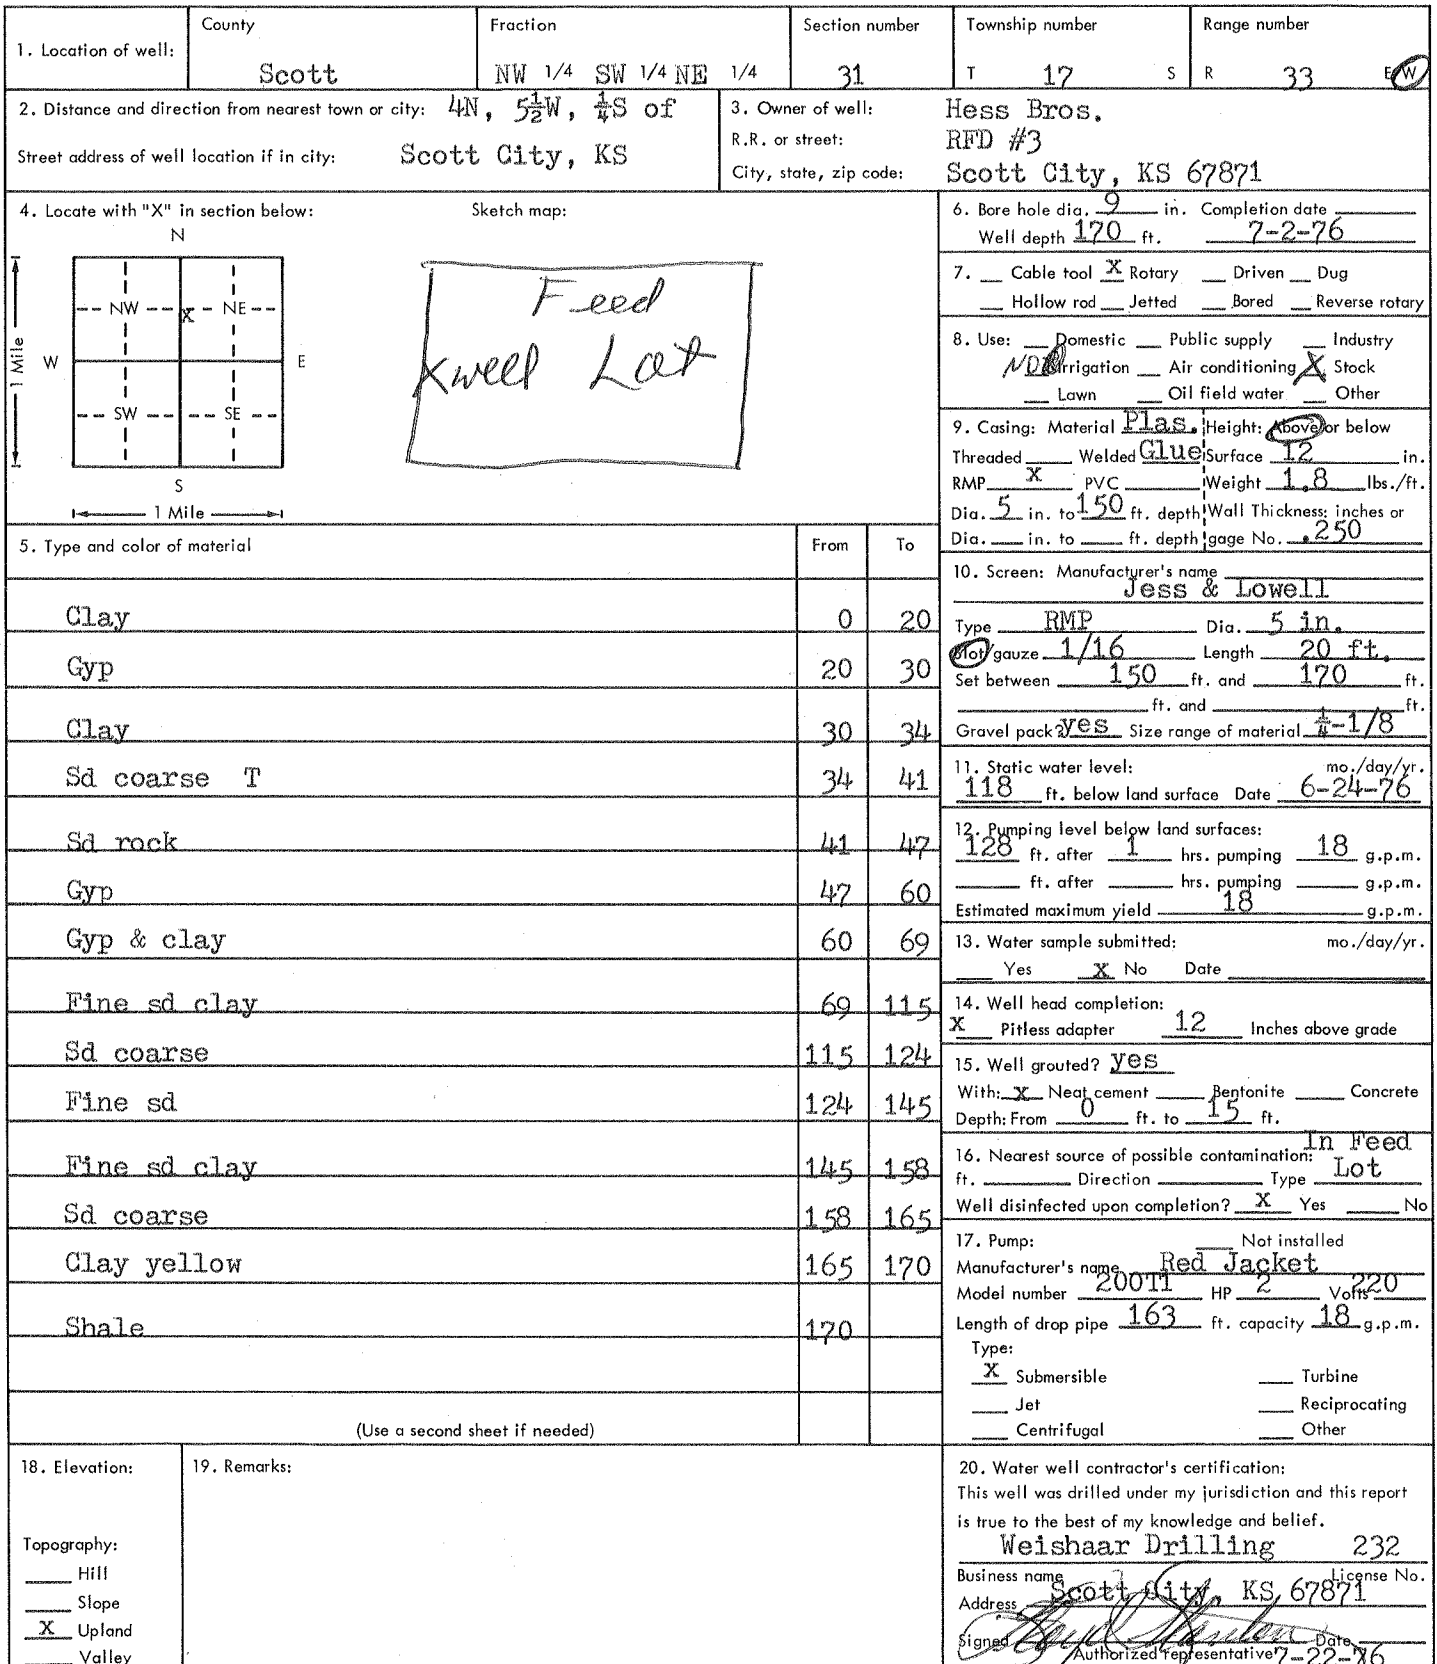 1. Location of well:
County
Scott
Fraction
NW 1/4 SW 1/4 NE 1/4
Section number
31
Township number
T 17 S
Range number
R 33 E W
2. Distance and direction from nearest town or city: 4N, 5½W, ¼S of
Street address of well location if in city: Scott City, KS
3. Owner of well: Hess Bros.
R.R. or street: RFD #3
City, state, zip code: Scott City, KS 67871
4. Locate with "X" in section below:
Sketch map:
N
NW X NE
W E
SW SE
S
1 Mile
1 Mile
Feed
X well Lot
5. Type and color of material From To
Clay 0 20
Gyp 20 30
Clay 30 34
Sd coarse T 34 41
Sd rock 41 47
Gyp 47 60
Gyp & clay 60 69
Fine sd clay 69 115
Sd coarse 115 124
Fine sd 124 145
Fine sd clay 145 158
Sd coarse 158 165
Clay yellow 165 170
Shale 170
(Use a second sheet if needed)
6. Bore hole dia. 9 in. Completion date
Well depth 170 ft. 7-2-76
7. Cable tool X Rotary Driven Dug
Hollow rod Jetted Bored Reverse rotary
8. Use: Domestic Public supply Industry
NO Irrigation Air conditioning X Stock
Lawn Oil field water Other
9. Casing: Material Plas. Height: Above or below
Threaded Welded Glue Surface 12 in.
RMP X PVC Weight 1.8 lbs./ft.
Dia. 5 in. to 150 ft. depth Wall Thickness: inches or
Dia. in. to ft. depth gage No. .250
10. Screen: Manufacturer's name
Jess & Lowell
Type RMP Dia. 5 in.
Slot/gauze 1/16 Length 20 ft.
Set between 150 ft. and 170 ft.
ft. and ft.
Gravel pack? yes Size range of material ¼-1/8
11. Static water level: mo./day/yr.
118 ft. below land surface Date 6-24-76
12. Pumping level below land surfaces:
128 ft. after 1 hrs. pumping 18 g.p.m.
ft. after hrs. pumping g.p.m.
Estimated maximum yield 18 g.p.m.
13. Water sample submitted: mo./day/yr.
Yes X No Date
14. Well head completion:
X Pitless adapter 12 Inches above grade
15. Well grouted? yes
With: X Neat cement Bentonite Concrete
Depth: From 0 ft. to 15 ft.
16. Nearest source of possible contamination: In Feed
ft. Direction Type Lot
Well disinfected upon completion? X Yes No
17. Pump: Not installed
Manufacturer's name Red Jacket
Model number 200T1 HP 2 Volts 220
Length of drop pipe 163 ft. capacity 18 g.p.m.
Type:
X Submersible Turbine
Jet Reciprocating
Centrifugal Other
18. Elevation:
Topography:
Hill
Slope
X Upland
Valley
19. Remarks:
20. Water well contractor's certification:
This well was drilled under my jurisdiction and this report
is true to the best of my knowledge and belief.
Weishaar Drilling 232
Business name License No.
Address Scott City, KS 67871
Signed Date
Authorized representative 7-22-76